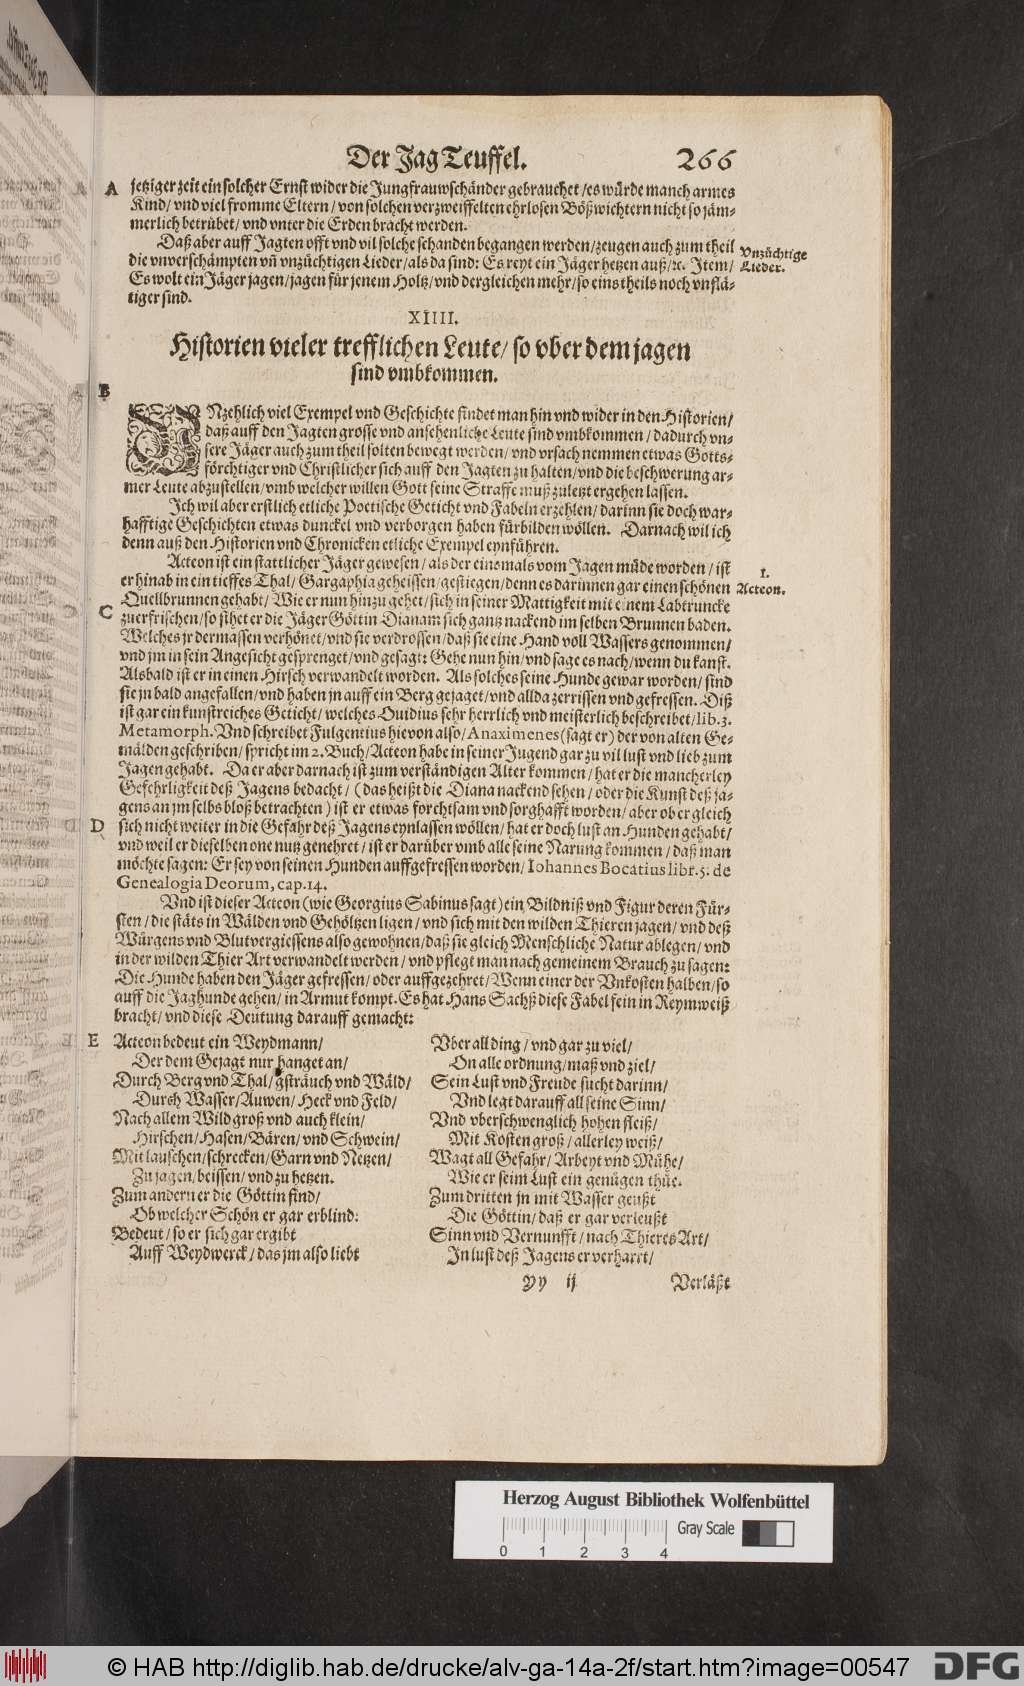 Der Jag Teuffel. 266
A jetziger zeit ein solcher Ernst wider die Jungfrauwschänder gebrauchet / es würde manch armes
Kind / vnd viel fromme Eltern / von solchen verzweiffelten ehrlosen Bößwichtern nicht so jäm-
merlich betrübet / vnd vnter die Erden bracht werden.
Daß aber auff Jagten offt vnd vil solche schanden begangen werden / zeugen auch zum theil
die vnverschämpten vñ vnzüchtigen Lieder / als da sind: Es reyt ein Jäger hetzen auß / ꝛc. Item /
Es wolt ein Jäger jagen / jagen für jenem Holtz / vnd dergleichen mehr / so eins theils noch vnflä-
tiger sind.
Vnzüchtige
Lieder.
XIIII.
Historien vieler trefflichen Leute / so vber dem jagen
sind vmbkommen.
B
VNzehlich viel Exempel vnd Geschichte findet man hin vnd wider in den Historien /
daß auff den Jagten grosse vnd ansehenliche Leute sind vmbkommen / dadurch vn-
sere Jäger auch zum theil solten bewegt werden / vnd vrsach nemmen etwas Gotts-
förchtiger vnd Christlicher sich auff den Jagten zu halten / vnd die beschwerung ar-
mer Leute abzustellen / vmb welcher willen Gott seine Straffe muß zuletzt ergehen lassen.
Ich wil aber erstlich etliche Poetische Geticht vnd Fabeln erzehlen / darinn sie doch war-
hafftige Geschichten etwas dunckel vnd verborgen haben fürbilden wöllen. Darnach wil ich
denn auß den Historien vnd Chronicken etliche Exempel eynführen.
Acteon ist ein stattlicher Jäger gewesen / als der einsmals vom Jagen müde worden / ist
er hinab in ein tieffes Thal / Gargaphia geheissen / gestiegen / denn es darinnen gar einen schönen
I.
Acteon.
Quellbrunnen gehabt / Wie er nun hinzu gehet / sich in seiner Mattigkeit mit einem Labtruncke
C zuerfrischen / so sihet er die Jäger Göttin Dianam sich gantz nackend im selben Brunnen baden.
Welches jr dermassen verhönet / vnd sie verdrossen / daß sie eine Hand voll Wassers genommen /
vnd jm in sein Angesicht gesprenget / vnd gesagt: Gehe nun hin / vnd sage es nach / wenn du kanst.
Alsbald ist er in einen Hirsch verwandelt worden. Als solches seine Hunde gewar worden / sind
sie jn bald angefallen / vnd haben jn auff ein Berg gejaget / vnd allda zerrissen vnd gefressen. Diß
ist gar ein kunstreiches Geticht / welches Ouidius sehr herrlich vnd meisterlich beschreibet / lib. 3.
Metamorph. Vnd schreibet Fulgentius hievon also / Anaximenes (sagt er) der von alten Ge-
mälden geschriben / spricht im 2. Buch / Acteon habe in seiner Jugend gar zu vil lust vnd lieb zum
Jagen gehabt. Da er aber darnach ist zum verständigen Alter kommen / hat er die mancherley
Gefehrligkeit deß Jagens bedacht / (das heißt die Diana nackend sehen / oder die Kunst deß ja-
gens an jm selbs bloß betrachten) ist er etwas forchtsam vnd sorghafft worden / aber ob er gleich
D sich nicht weiter in die Gefahr deß Jagens eynlassen wöllen / hat er doch lust an Hunden gehabt /
vnd weil er dieselben one nutz genehret / ist er darüber vmb alle seine Narung kommen / daß man
möchte sagen: Er sey von seinen Hunden auffgefressen worden / Iohannes Bocatius libr. 5. de
Genealogia Deorum, cap. 14.
Vnd ist dieser Acteon (wie Georgius Sabinus sagt) ein Bildniß vnd Figur deren Für-
sten / die stäts in Wälden vnd Gehöltzen ligen / vnd sich mit den wilden Thieren jagen / vnd deß
Würgens vnd Blutvergiessens also gewohnen / daß sie gleich Menschliche Natur ablegen / vnd
in der wilden Thier Art verwandelt werden / vnd pflegt man nach gemeinem Brauch zu sagen:
Die Hunde haben den Jäger gefressen / oder auffgezehret / Wenn einer der Vnkosten halben / so
auff die Jaghunde gehen / in Armut kompt. Es hat Hans Sachß diese Fabel fein in Reymweiß
bracht / vnd diese Deutung darauff gemacht:
E Acteon bedeut ein Weydmann /
Der dem Gejagt nur hanget an /
Durch Berg vnd Thal / gsträuch vnd Wäld /
Dursh Wasser / Auwen / Heck vnd Feld /
Nach allem Wild groß vnd auch klein /
Hirschen / Hasen / Bären / vnd Schwein /
Mit lauschen / schrecken / Garn vnd Netzen /
Zu jagen / beissen / vnd zu hetzen.
Zum andern er die Göttin find /
Ob welcher Schön er gar erblind:
Bedeut / so er sich gar ergibt
Auff Weydwerck / das jm also liebt
Vber all ding / vnd gar zu viel /
On alle ordnung / maß vnd ziel /
Sein Lust vnd Freude sucht darinn /
Vnd legt darauff all seine Sinn /
Vnd vberschwenglich hohen fleiß /
Mit Kosten groß / allerley weiß /
Wagt all Gefahr / Arbeyt vnd Mühe /
Wie er seim Lust ein genügen thüe.
Zum dritten jn mit Wasser geußt
Die Göttin / daß er gar verleußt
Sinn vnd Vernunfft / nach Thieres Art /
In lust deß Jagens er verharrt /
Yy ij Verläßt
Herzog August Bibliothek Wolfenbüttel
0 1 2 3 4
Gray Scale
© HAB http://diglib.hab.de/drucke/alv-ga-14a-2f/start.htm?image=00547
DFG